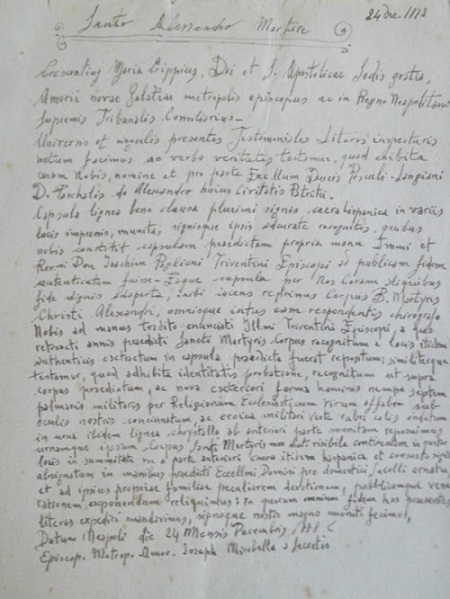 24 Dec. 1778
Santo Alessandro Martire
Crescentius Maria Crippius, Dei et S. Apostolicae Sedis gratia,
Amorii novae Galatiae metropolis episcopus ac in Regno Neapolitani
Supremis Tribunalis Consiliarius-
Universis et singulis presentes Testimoniales Literas inspecturis
notum facimus ac verbo veritatis testamur, quod exhibita
coram Nobis, nomine et pro parte Excell.mi Ducis Pascali
D. Paschalis de Alexandro huius Civitatis Patritii.
Capsula lignea bene clausa plurimi signis cera hispanica in variis
locis impressis, munita, signisque ipsis adcurate recognitis, quibus
nobis constitit capsulam praedictam propria manu Ill.mi et
Rev.mi Don Ioachim Paglioni Triventini Episcopi ad publicam fidem
autenticatam fuisse - Eaque capsula per Nos coram aliquibus
fide dignis aperta, inibi iacens reperimus Corpus B. Martyris
Christi Alexandri, omnisque intus eam respondentis chirografo
Nobis ad manus tradito enunciati Ill.mi Triventini Episcopi, a quo
retroacti annis praediti Sancti Martyris Corpus recognitum a locis itidem
authenticis exctractum in capsula praedicta fuerat repositum; similiterque
testamur, quod adhibita identitatis probatione, recognitum ut supra
corpus praedictum, ac nova exteriori forma hominis nempe septem
palmaris militares per Religionum Ecclesiasticum virum affabre sub
oculis nostris concinnatum, ac eroica militari veste rubri colis ornatum
in urna itidem lignea chrystallo ab anteriori parte munitam reposuimus
urnamque ipsam Corpus Santi Martyris
locis in summitate a parte anteriori cera itidem hispanica et consueto signo
absignatam in manibus praedicti Excell.mi Domini pro domestici Sacelli ornatu,
et ad ipsius propriae familiae peculiarem devotionem, publicamque vene
rationem, exponendum reliquimus: in quorum omnium fidem has praesentes
literas expediri mandavimus, signoque nostro magno muniti fecimus,
Datum Neapoli die 24 Mensis Decembris
Episcop. Metrop. Amor. Joseph Mirabella a Secretis